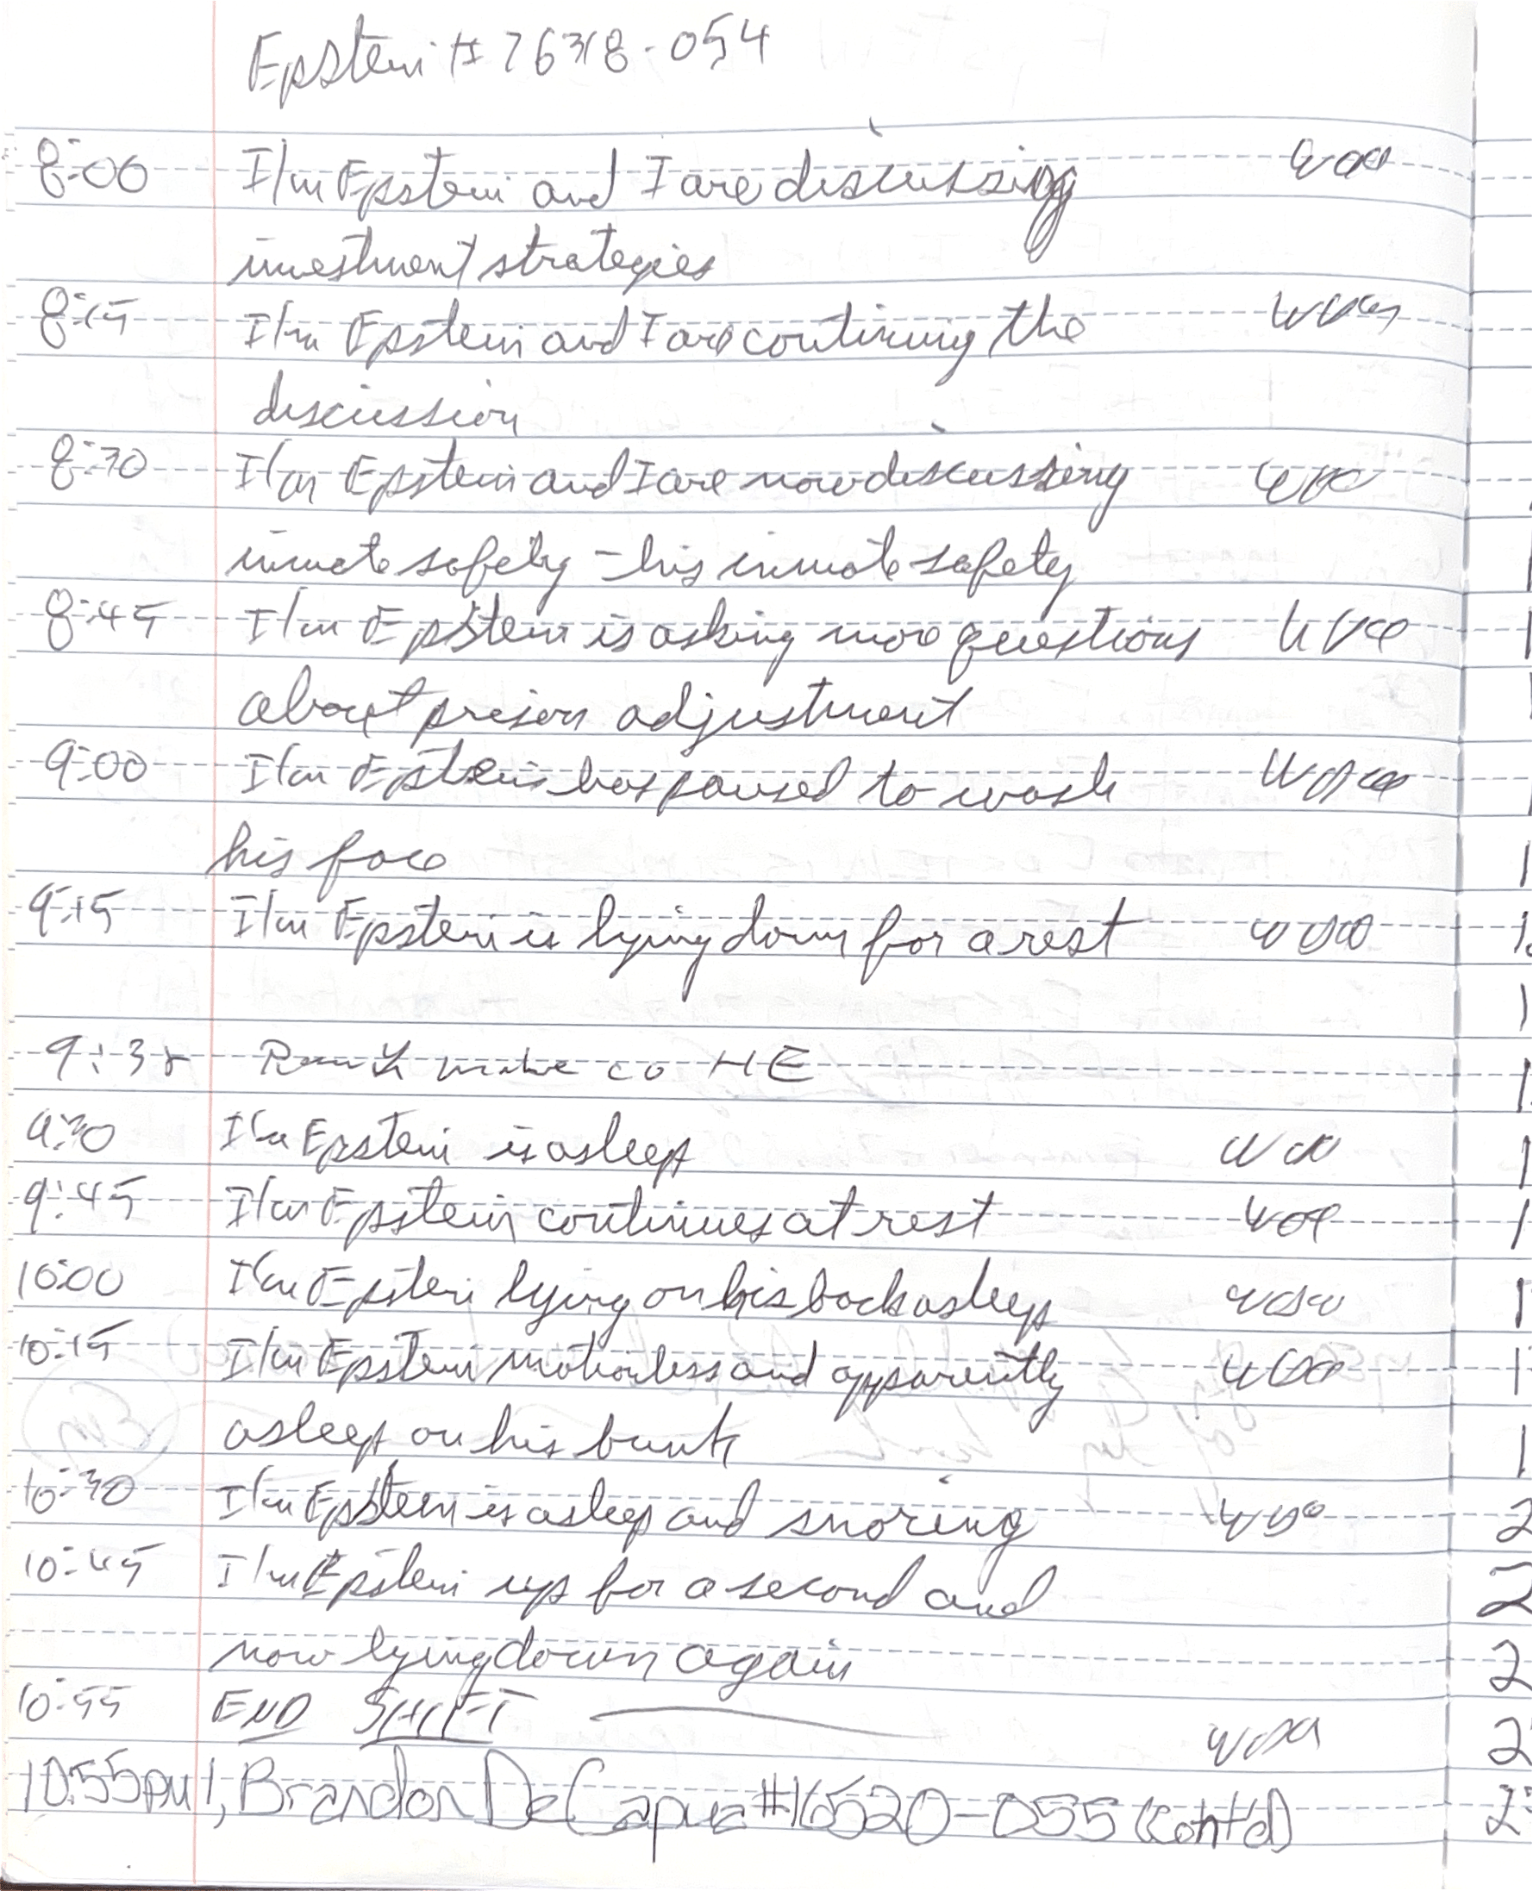 Epstein # 76318-054
8:00 I/m Epstein and I are discussing
investment strategies
8:15 I/m Epstein and I are continuing the
discussion
8:30 I/m Epstein and I are now discussing
inmate safety - his inmate safety
8:45 I/m Epstein is asking more questions
about prison adjustment
9:00 I/m Epstein has paused to wash
his face
9:15 I/m Epstein is lying down for a rest
9:30 I/m Epstein is asleep
9:45 I/m Epstein continues at rest
10:00 I/m Epstein lying on his back asleep
10:15 I/m Epstein motionless and apparently
asleep on his bunk
10:30 I/m Epstein is asleep and snoring
10:45 I/m Epstein up for a second and
now lying down again
10:55 END SHIFT
10:55pm I, Brandon DeCapua #16520-055 (Cont'd)